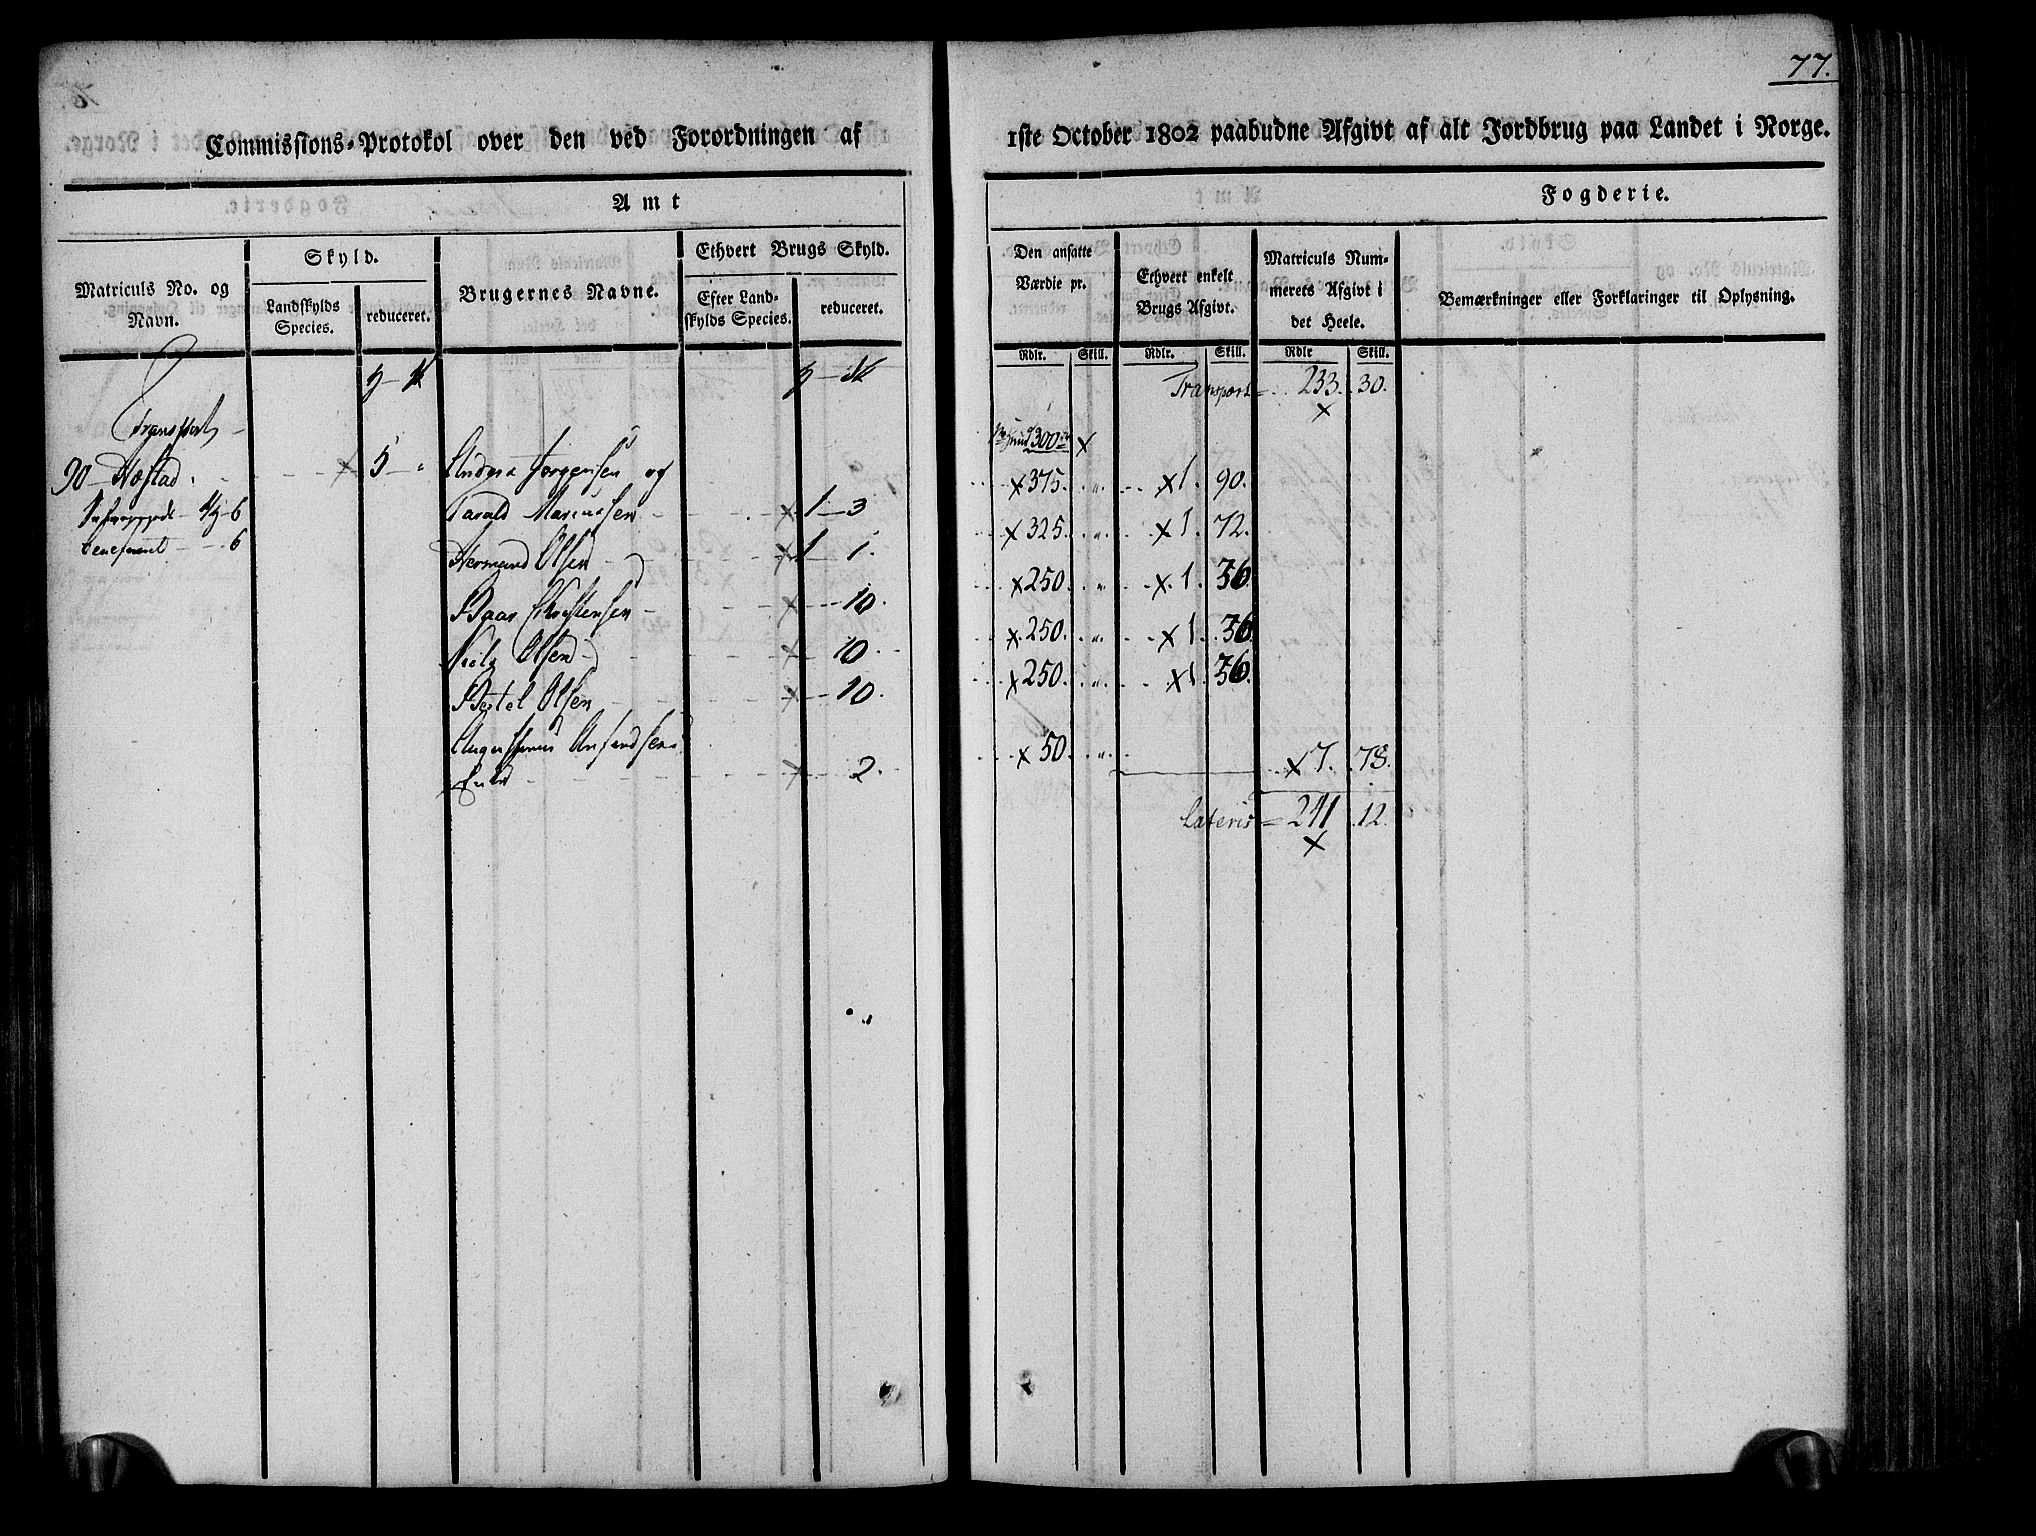 77.
Commissions-Protokol over den ved Forordningen af 1ste October 1802 paabudne Afgivt af alt Jordbrug paa Landet i Norge.
Amt
Fogderie.
Matriculs No. og Navn.
Skyld.
Landskylds Species.
reduceret.
Brugernes Navne.
Ethvert Brugs Skyld.
Efter Landskylds Species.
reduceret.
Den ansatte Værdie pr.
Ethvert enkelt Brugs Afgivt.
Matriculs Nummerets Afgivt i det Heele.
Bemærkninger eller Forklaringer til Oplysning.
Rdlr. Skill. Rdlr. Skill. Rdlr Skill.
Transport = 233. 30.
Transport
300
90 Næstad 5 Anders Jørgensen og
Tarald Mariussen 1 3 375. 1. 90.
6
6
Hermand Olsen 1 1. 325. 1. 72.
Baar Christensen 10. 250. 1. 36
Niels Olsen 10. 250. 1. 36
Bertel Olsen 10. 250. 1 36.
Anfindsens
Enke 2. 50. 7. 78.
Lateris = 241 12.